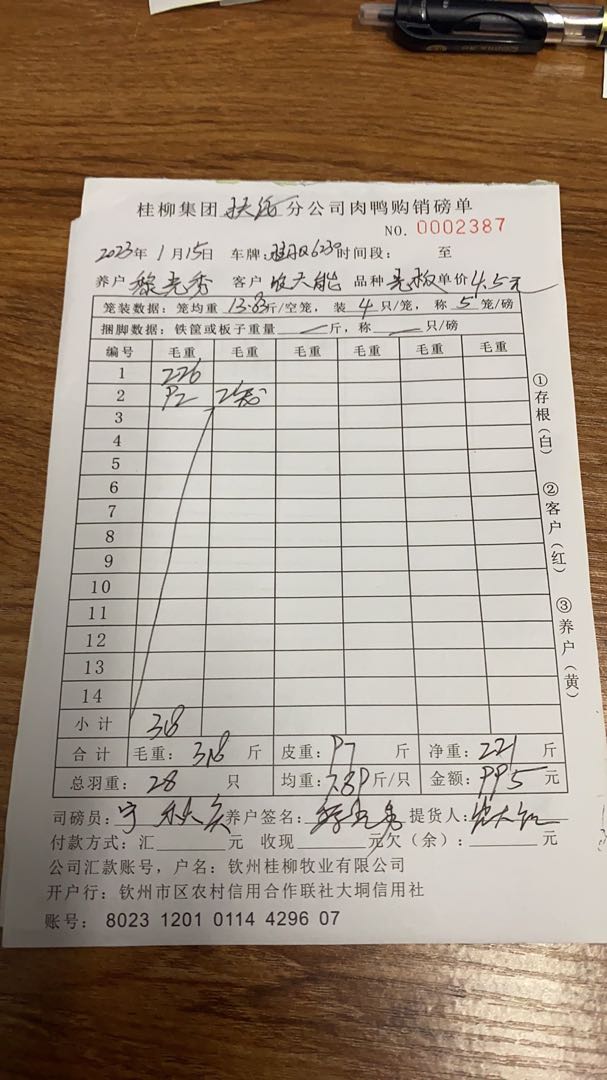 桂柳集团 扶绥 分公司肉鸭购销磅单
NO. 0002387
2023年 1月15日 车牌: 时间段: 至
养户 黎光秀 客户 品种 单价 4.5元
笼装数据: 笼均重 13.83斤/空笼, 装 4 只/笼, 称 5 笼/磅
捆脚数据: 铁筐或板子重量 — 斤, 称 — 只/磅
编号 毛重 毛重 毛重 毛重 毛重 毛重
1 226
2 92
3
4
5
6
7
8
9
10
11
12
13
14
小计 318
合计 毛重: 318 斤 皮重: 97 斤 净重: 221 斤
总羽重: 28 只 均重: 7.89 斤/只 金额: 995 元
司磅员: 养户签名: 提货人:
付款方式: 汇 元 收现 元欠(余): 元
公司汇款账号, 户名: 钦州桂柳牧业有限公司
开户行: 钦州市区农村信用合作联社大垌信用社
账号: 8023 1201 0114 4296 07
①存根(白)
②客户(红)
③养户(黄)